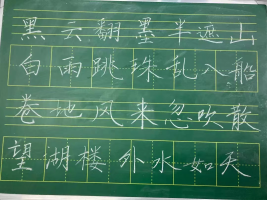 黑云翻墨半遮山
白雨跳珠乱入船
卷地风来忽吹散
望湖楼外水如天